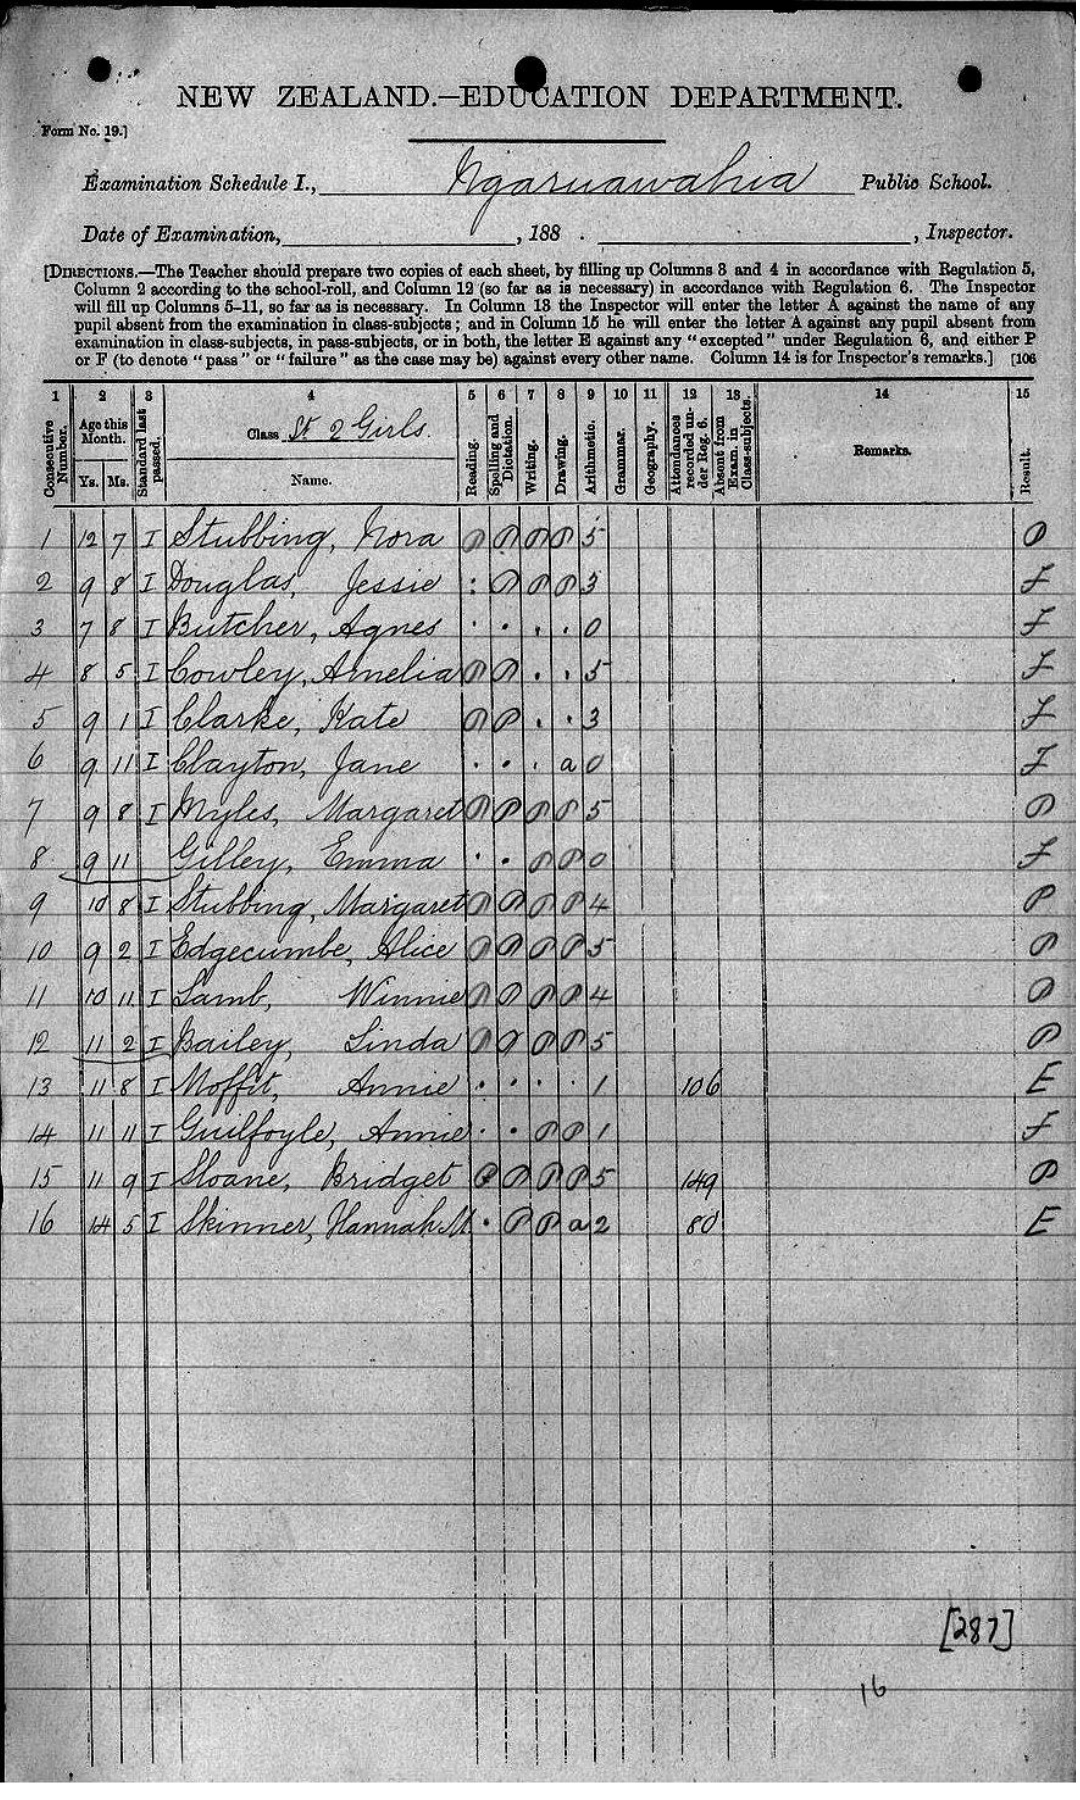 NEW ZEALAND.—EDUCATION DEPARTMENT.
Form No. 19.]
Examination Schedule I., Ngaruawahia Public School.
Date of Examination, , 188 . , Inspector.
[DIRECTIONS.—The Teacher should prepare two copies of each sheet, by filling up Columns 3 and 4 in accordance with Regulation 5,
Column 2 according to the school-roll, and Column 12 (so far as is necessary) in accordance with Regulation 6. The Inspector
will fill up Columns 5–11, so far as is necessary. In Column 13 the Inspector will enter the letter A against the name of any
pupil absent from the examination in class-subjects; and in Column 15 he will enter the letter A against any pupil absent from
examination in class-subjects, in pass-subjects, or in both, the letter E against any "excepted" under Regulation 6, and either P
or F (to denote "pass" or "failure" as the case may be) against every other name. Column 14 is for Inspector's remarks.] [106
1 2 3 4 5 6 7 8 9 10 11 12 13 14 15
Consecutive Number. Age this Month. Ys. Ms. Standard last passed. Class St 2 Girls. Name. Reading. Spelling and Dictation. Writing. Drawing. Arithmetic. Grammar. Geography. Attendances recorded under Reg. 6. Absent from Exam. in Class-subjects. Remarks. Result.
1 12 7 I Stubbing, Nora P P P P 5 P
2 9 8 I Douglas, Jessie : P P P 3 F
3 7 8 I Butcher, Agnes . . . . 0 F
4 8 5 I Cowley, Amelia P P . . 5 F
5 9 1 I Clarke, Kate P P . . 3 F
6 9 11 I Clayton, Jane . . . a 0 F
7 9 8 I Myles, Margaret P P P P 5 P
8 9 11 Gilley, Emma . . P P 0 F
9 10 8 I Stubbing, Margaret P P P P 4 P
10 9 2 I Edgecumbe, Alice P P P P 5 P
11 10 11 I Lamb, Winnie P P P P 4 P
12 11 2 I Bailey, Linda P P P P 5 P
13 11 8 I Moffit, Annie . . . . 1 106 E
14 11 11 I Guilfoyle, Annie . . P P 1 F
15 11 9 I Sloane, Bridget P P P P 5 149 P
16 14 5 I Skinner, Hannah M. . P P a 2 80 E
[287]
16